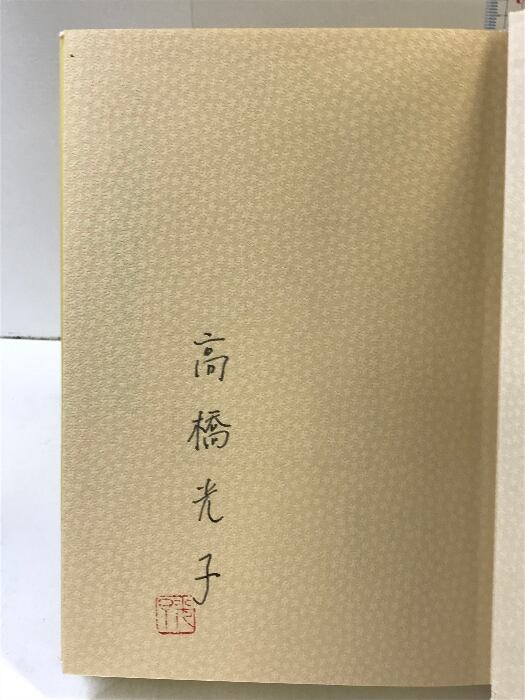 高橋光子